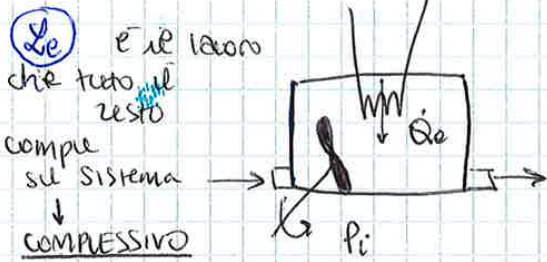 Le è il lavoro
che tutto il
resto
compie
sul sistema
COMPLESSIVO
Q̇e
Pi